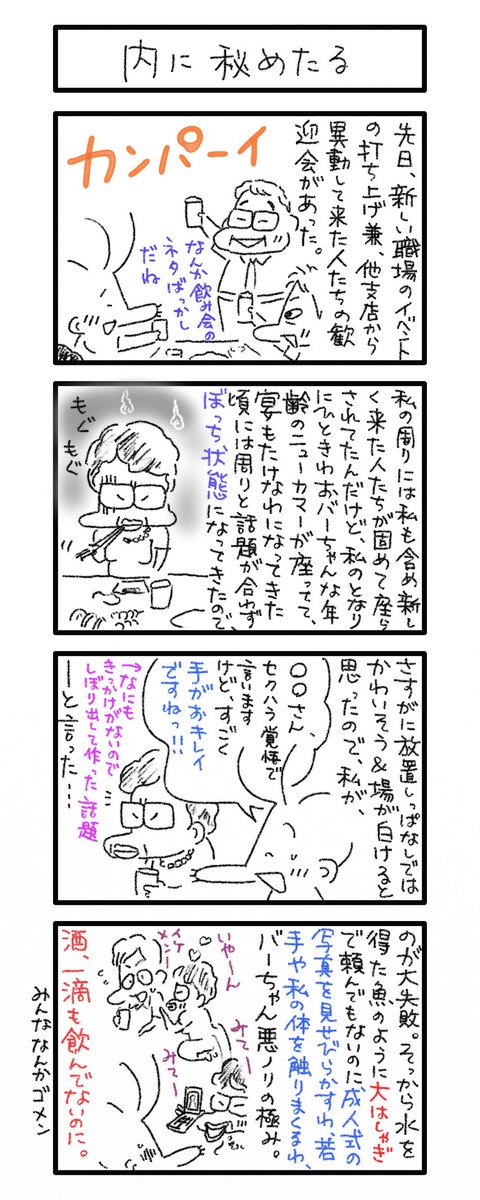 内に秘めたる
先日、新しい職場のイベント
の打ち上げ兼、他支店から
異動して来た人たちの歓
迎会があった。
カンパーイ
なんか飲み会の
ネタばっかし
だね
私の周りには私も含め新し
く来た人たちが固めて座ら
されてたんだけど、私のとなり
にひときわおバーちゃんな年
齢のニューカマーが座ってて、
宴もたけなわになってきた
頃には周りと話題が合わず
ぼっち状態になってきたので、
もぐ
もぐ
さすがに放置しっぱなしでは
かわいそう&場が白けると
思ったので、私が、
〇〇さん、
セクハラ覚悟で
言います
けど、すごく
手がおキレイ
ですねっ!!
→なにも
きっかけがないので
しぼり出して作った話題
ーと言った…
のが大失敗。そっから水を
得た魚のように大はしゃぎ
で頼んでもないのに成人式の
写真を見せびらかすわ、若
手や私の体を触りまくるわ、
バーちゃん悪ノリの極み。
いやーん
イケ
メンー
みてー
みてー
酒、一滴も飲んでないのに。
みんななんかゴメン